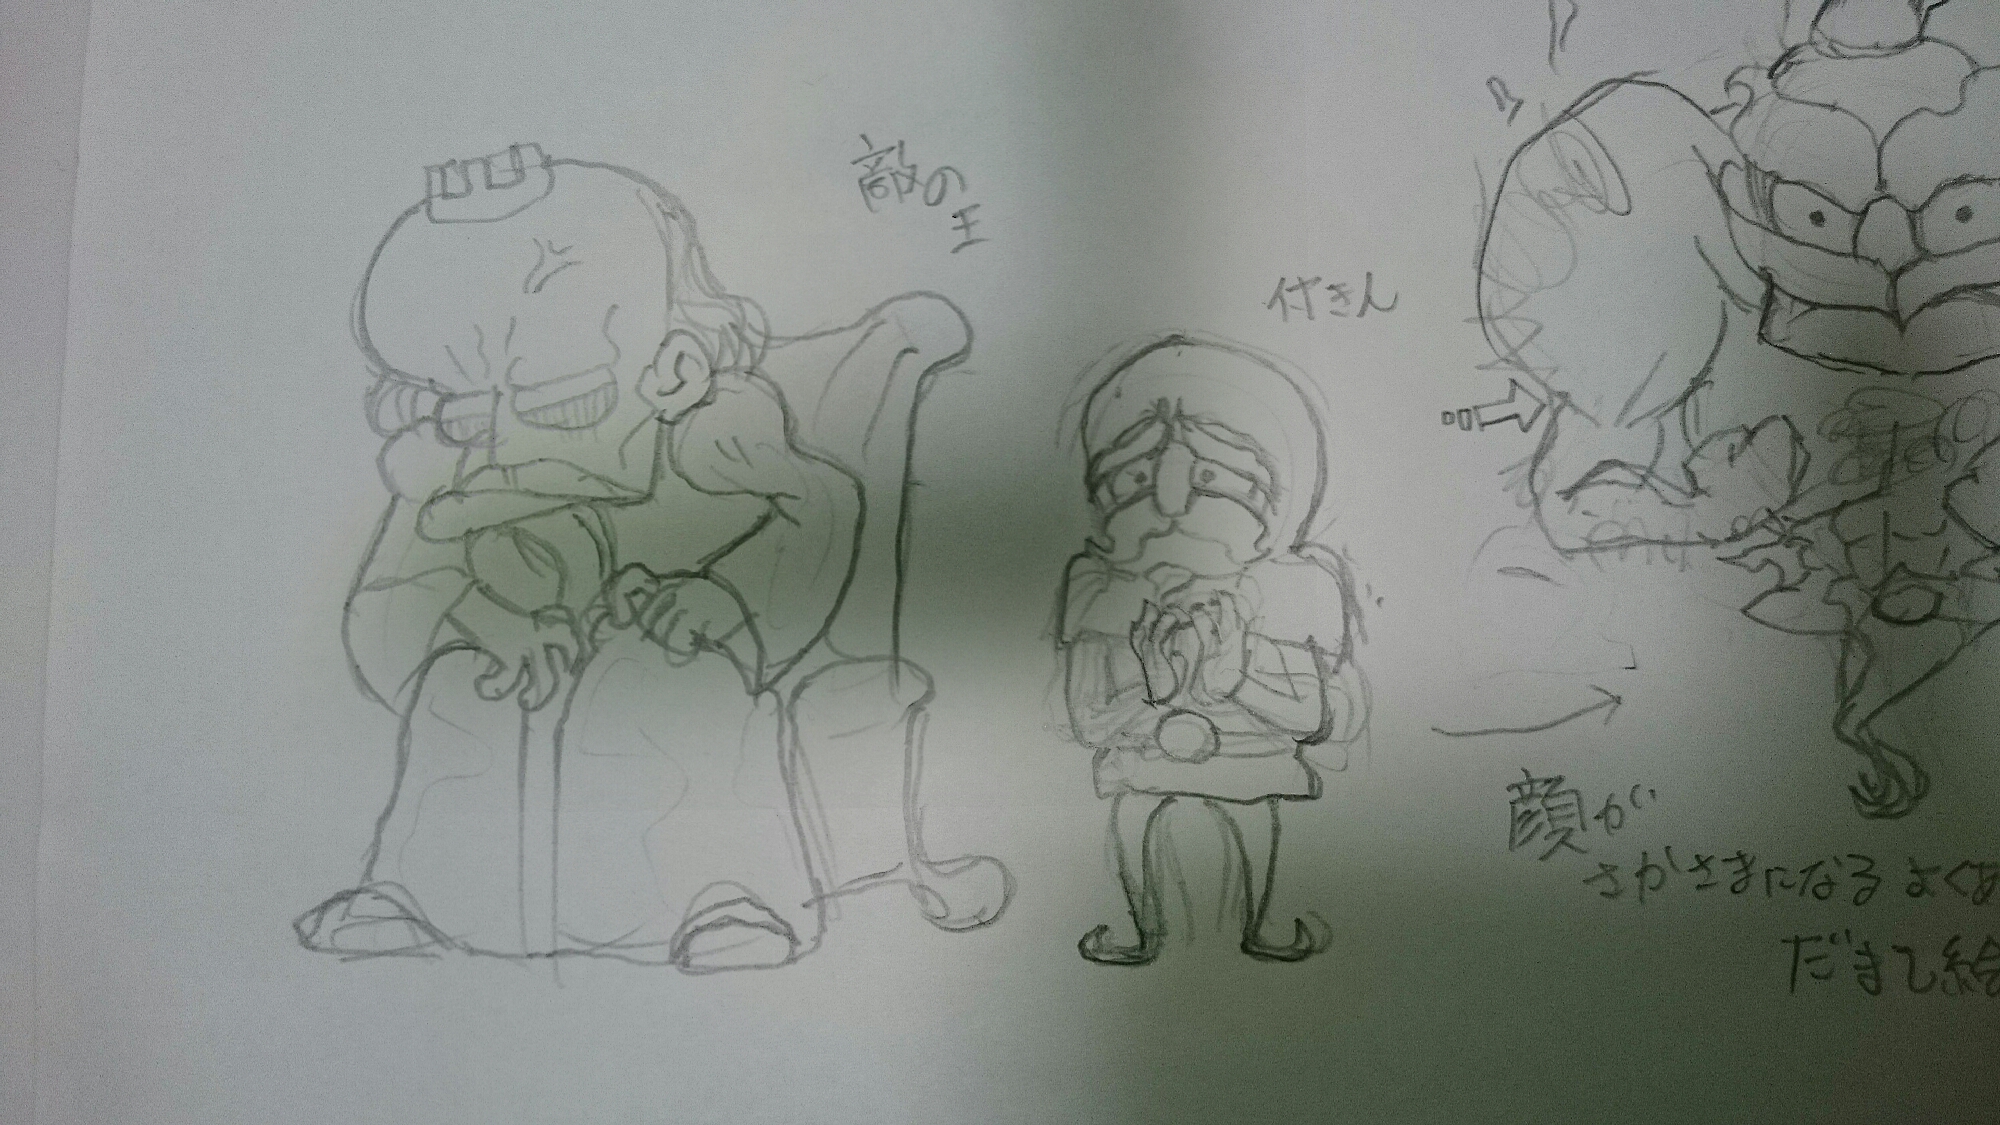 敵の
王
付き人
顔が
さかさまになる よくあ
だまし絵